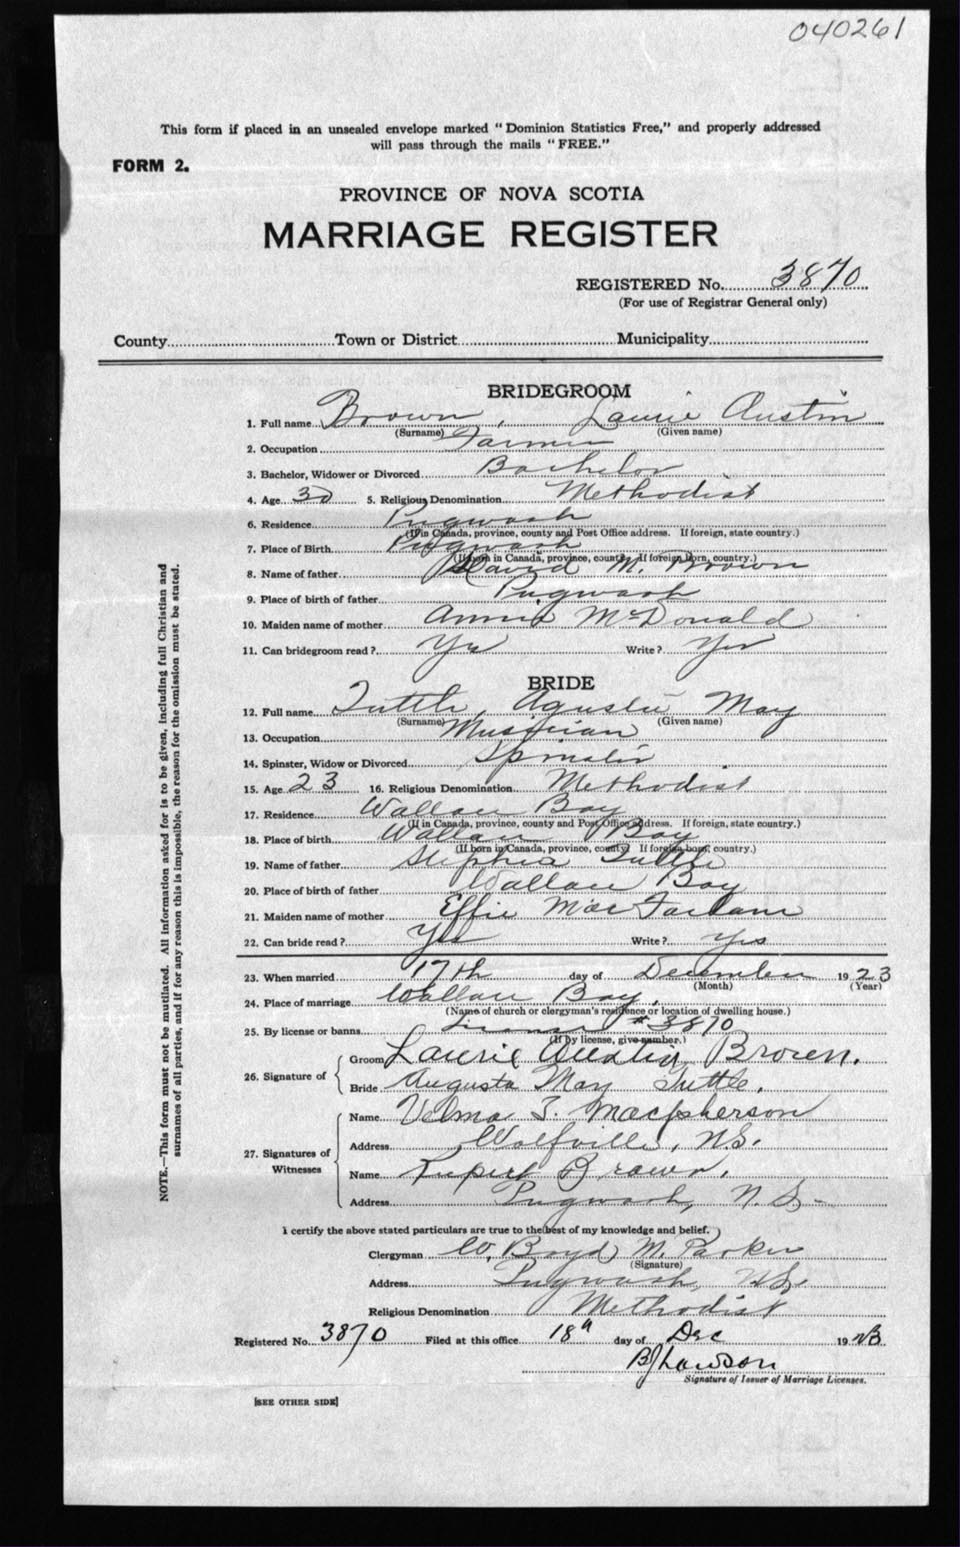 040261
This form if placed in an unsealed envelope marked "Dominion Statistics Free," and properly addressed
will pass through the mails "FREE."
FORM 2.
PROVINCE OF NOVA SCOTIA
MARRIAGE REGISTER
REGISTERED No. 3870
(For use of Registrar General only)
County Town or District Municipality
BRIDEGROOM
1. Full name Brown, Laurie Austin
(Surname) (Given name)
2. Occupation Farmer
3. Bachelor, Widower or Divorced Bachelor
4. Age 30 5. Religious Denomination Methodist
6. Residence Pugwash
(If in Canada, province, county and Post Office address. If foreign, state country.)
7. Place of Birth Pugwash
(If born in Canada, province, county. If foreign born, country.)
8. Name of father David M. Brown
9. Place of birth of father Pugwash
10. Maiden name of mother Annie McDonald
11. Can bridegroom read? Yes Write? Yes
BRIDE
12. Full name Tuttle, Agusta May
(Surname) (Given name)
13. Occupation Musician
14. Spinster, Widow or Divorced Spinster
15. Age 23 16. Religious Denomination Methodist
17. Residence Wallace Bay
(If in Canada, province, county and Post Office address. If foreign, state country.)
18. Place of birth Wallace Bay
(If born in Canada, province, county. If foreign born, country.)
19. Name of father Stephen Tuttle
20. Place of birth of father Wallace Bay
21. Maiden name of mother Effie MacFarlane
22. Can bride read? Yes Write? Yes
23. When married 17th day of December 1923
(Month) (Year)
24. Place of marriage Wallace Bay.
(Name of church or clergyman's residence or location of dwelling house.)
25. By license or banns License #3870
(If by license, give number.)
26. Signature of
Groom Laurie Austin Brown.
Bride Augusta May Tuttle.
27. Signatures of Witnesses
Name Velma T. Macpherson
Address Wolfville, N.S.
Name Rupert Brown.
Address Pugwash, N.S.
I certify the above stated particulars are true to the best of my knowledge and belief.
Clergyman W. Boyd M. Parker
(Signature)
Address Pugwash, N.S.
Religious Denomination Methodist
Registered No. 3870 Filed at this office 18th day of Dec 1923
B J Lawson
Signature of Issuer of Marriage Licenses.
[SEE OTHER SIDE]
NOTE.—This form must not be mutilated. All information asked for is to be given, including full Christian and
surnames of all parties, and if for any reason this is impossible, the reason for the omission must be stated.